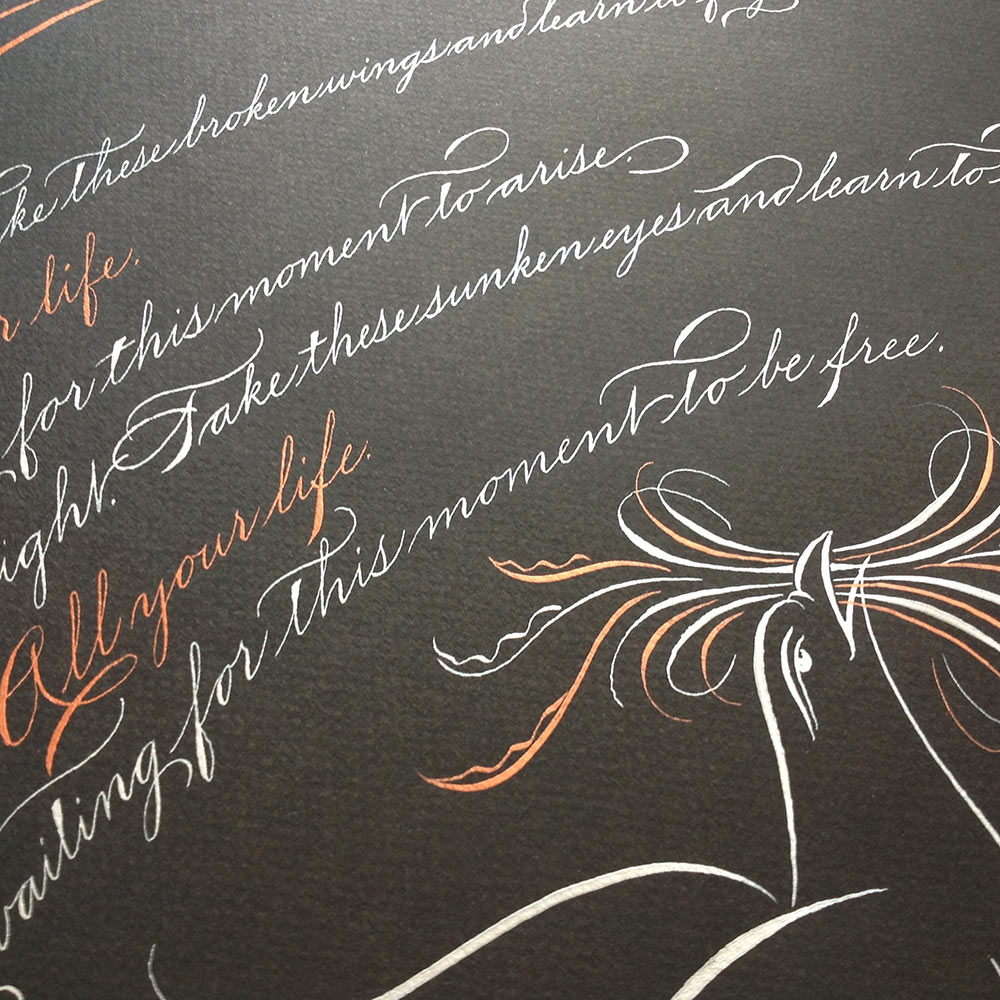 ke these broken wings and learn to
life.
for this moment to arise.
ight. Take these sunken eyes and learn to
All your life.
aiting for this moment to be free.